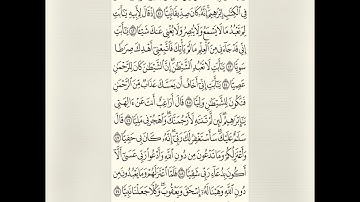 فِي ٱلْكِتَٰبِ إِبْرَٰهِيمَ إِنَّهُۥ كَانَ صِدِّيقًا نَّبِيًّا ﴿٤١﴾ إِذْ قَالَ لِأَبِيهِ يَٰٓأَبَتِ
لِمَ تَعْبُدُ مَا لَا يَسْمَعُ وَلَا يُبْصِرُ وَلَا يُغْنِى عَنكَ شَيْـًٔا ﴿٤٢﴾ يَٰٓأَبَتِ
إِنِّى قَدْ جَآءَنِى مِنَ ٱلْعِلْمِ مَا لَمْ يَأْتِكَ فَٱتَّبِعْنِىٓ أَهْدِكَ صِرَٰطًا
سَوِيًّا ﴿٤٣﴾ يَٰٓأَبَتِ لَا تَعْبُدِ ٱلشَّيْطَٰنَ إِنَّ ٱلشَّيْطَٰنَ كَانَ لِلرَّحْمَٰنِ
عَصِيًّا ﴿٤٤﴾ يَٰٓأَبَتِ إِنِّىٓ أَخَافُ أَن يَمَسَّكَ عَذَابٌ مِّنَ ٱلرَّحْمَٰنِ
فَتَكُونَ لِلشَّيْطَٰنِ وَلِيًّا ﴿٤٥﴾ قَالَ أَرَاغِبٌ أَنتَ عَنْ ءَالِهَتِى
يَٰٓإِبْرَٰهِيمُ لَئِن لَّمْ تَنتَهِ لَأَرْجُمَنَّكَ وَٱهْجُرْنِى مَلِيًّا ﴿٤٦﴾ قَالَ
سَلَٰمٌ عَلَيْكَ سَأَسْتَغْفِرُ لَكَ رَبِّىٓ إِنَّهُۥ كَانَ بِى حَفِيًّا ﴿٤٧﴾
وَأَعْتَزِلُكُمْ وَمَا تَدْعُونَ مِن دُونِ ٱللَّهِ وَأَدْعُوا۟ رَبِّى عَسَىٰٓ أَلَّآ
أَكُونَ بِدُعَآءِ رَبِّى شَقِيًّا ﴿٤٨﴾ فَلَمَّا ٱعْتَزَلَهُمْ وَمَا يَعْبُدُونَ مِن
دُونِ ٱللَّهِ وَهَبْنَا لَهُۥٓ إِسْحَٰقَ وَيَعْقُوبَ وَكُلًّا جَعَلْنَا نَبِيًّا ﴿٤٩﴾